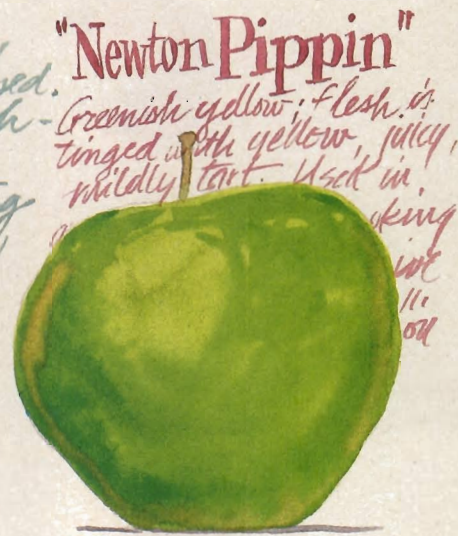 "Newton Pippin"
Greenish yellow; flesh is
tinged with yellow, juicy,
mildly tart. Used in
oking
on